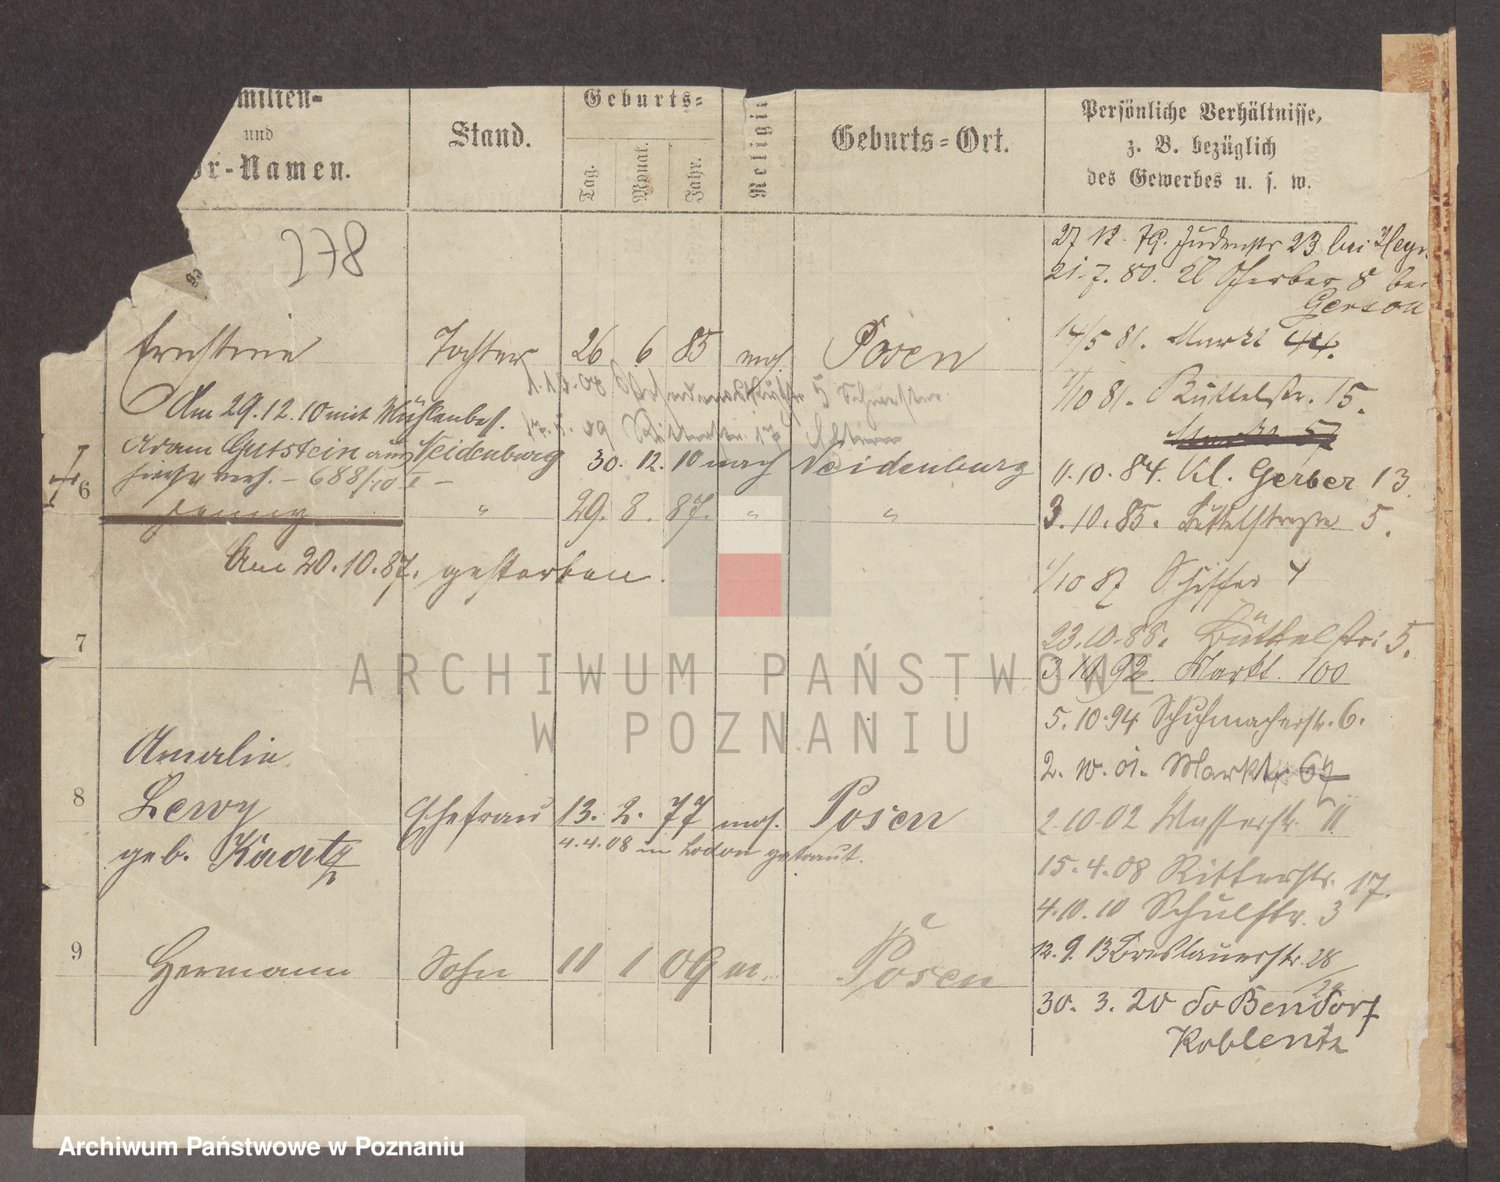 milien-
und
or-Namen.
Stand.
Geburts-
Tag.
Monat.
Jahr.
Religion
Geburts-Ort.
Persönliche Verhältnisse,
z. B. bezüglich
des Gewerbes u. s. w.
278
27 12. 79. Judenstr 23 bei Heym
21.7. 80. Kl Gerber 8 bei
Gerson
14/5 81. Markt 44.
Ernstine Tochter 26 6 85 mos. Posen
1/10 81. Büttelstr. 15.
Am 29.12.10 mit Mühlenbes.
Adam Gutstein aus Neidenburg 30. 12. 10 nach Neidenburg
688/10 II
11.10.84. Kl. Gerber 13
6 Jenny " 29. 8. 87. " "
3.10.85. Büttelstraße 5.
Am 20.10.87. gestorben.
1/10 87 Schiffer 4
23.10.88. Büttelstr. 5.
7
3.10.92. Markt. 100
5.10.94 Schuhmacherstr. 6.
2. 10. 01. Markt 67
Amalie
8 Lewy Ehefrau 13. 2. 77 mos. Posen
geb. Kaatz
4.4.08 in Lodon getraut.
2.10.02 Wasserstr. 11
15.4.08 Ritterstr. 17.
4.10.10 Schulstr. 3
12.9.13 Breslauerstr. 28/29
9 Hermann Sohn 11 1 09 m. Posen
30. 3. 20 do Bendorf
Koblentz
ARCHIWUM PAŃSTWOWE
W POZNANIU
Archiwum Państwowe w Poznaniu